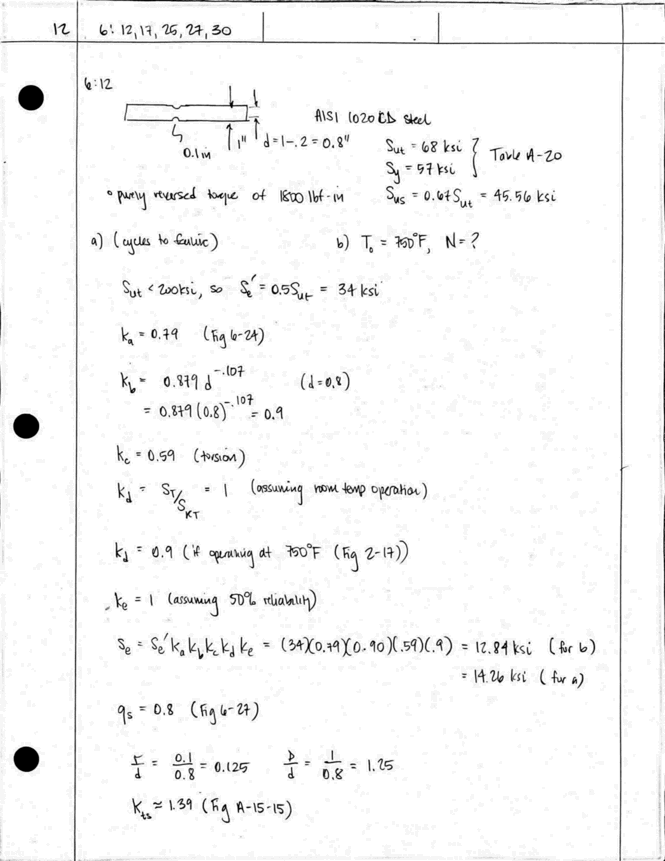 12 6: 12, 17, 25, 27, 30
6:12
AISI 1020 CD steel
0.1 in 1" d = 1 - .2 = 0.8"
Sut = 68 ksi
Sy = 57 ksi } Table A-20
Sus = 0.67 Sut = 45.56 ksi
• purely reversed torque of 1800 lbf-in
a) (cycles to failure) b) To = 750°F, N = ?
Sut < 200ksi, so Se' = 0.5Sut = 34 ksi
ka = 0.79 (Fig 6-24)
kb = 0.879 d^-.107 (d = 0.8)
= 0.879 (0.8)^-.107 = 0.9
kc = 0.59 (torsion)
kd = ST/SRT = 1 (assuming room temp operation)
kd = 0.9 (if operating at 750°F (Fig 2-17))
ke = 1 (assuming 50% reliability)
Se = Se' ka kb kc kd ke = (34)(0.79)(0.90)(.59)(.9) = 12.84 ksi (for b)
= 14.26 ksi (for a)
qs = 0.8 (Fig 6-27)
r/d = 0.1/0.8 = 0.125 D/d = 1/0.8 = 1.25
Kts ≈ 1.39 (Fig A-15-15)